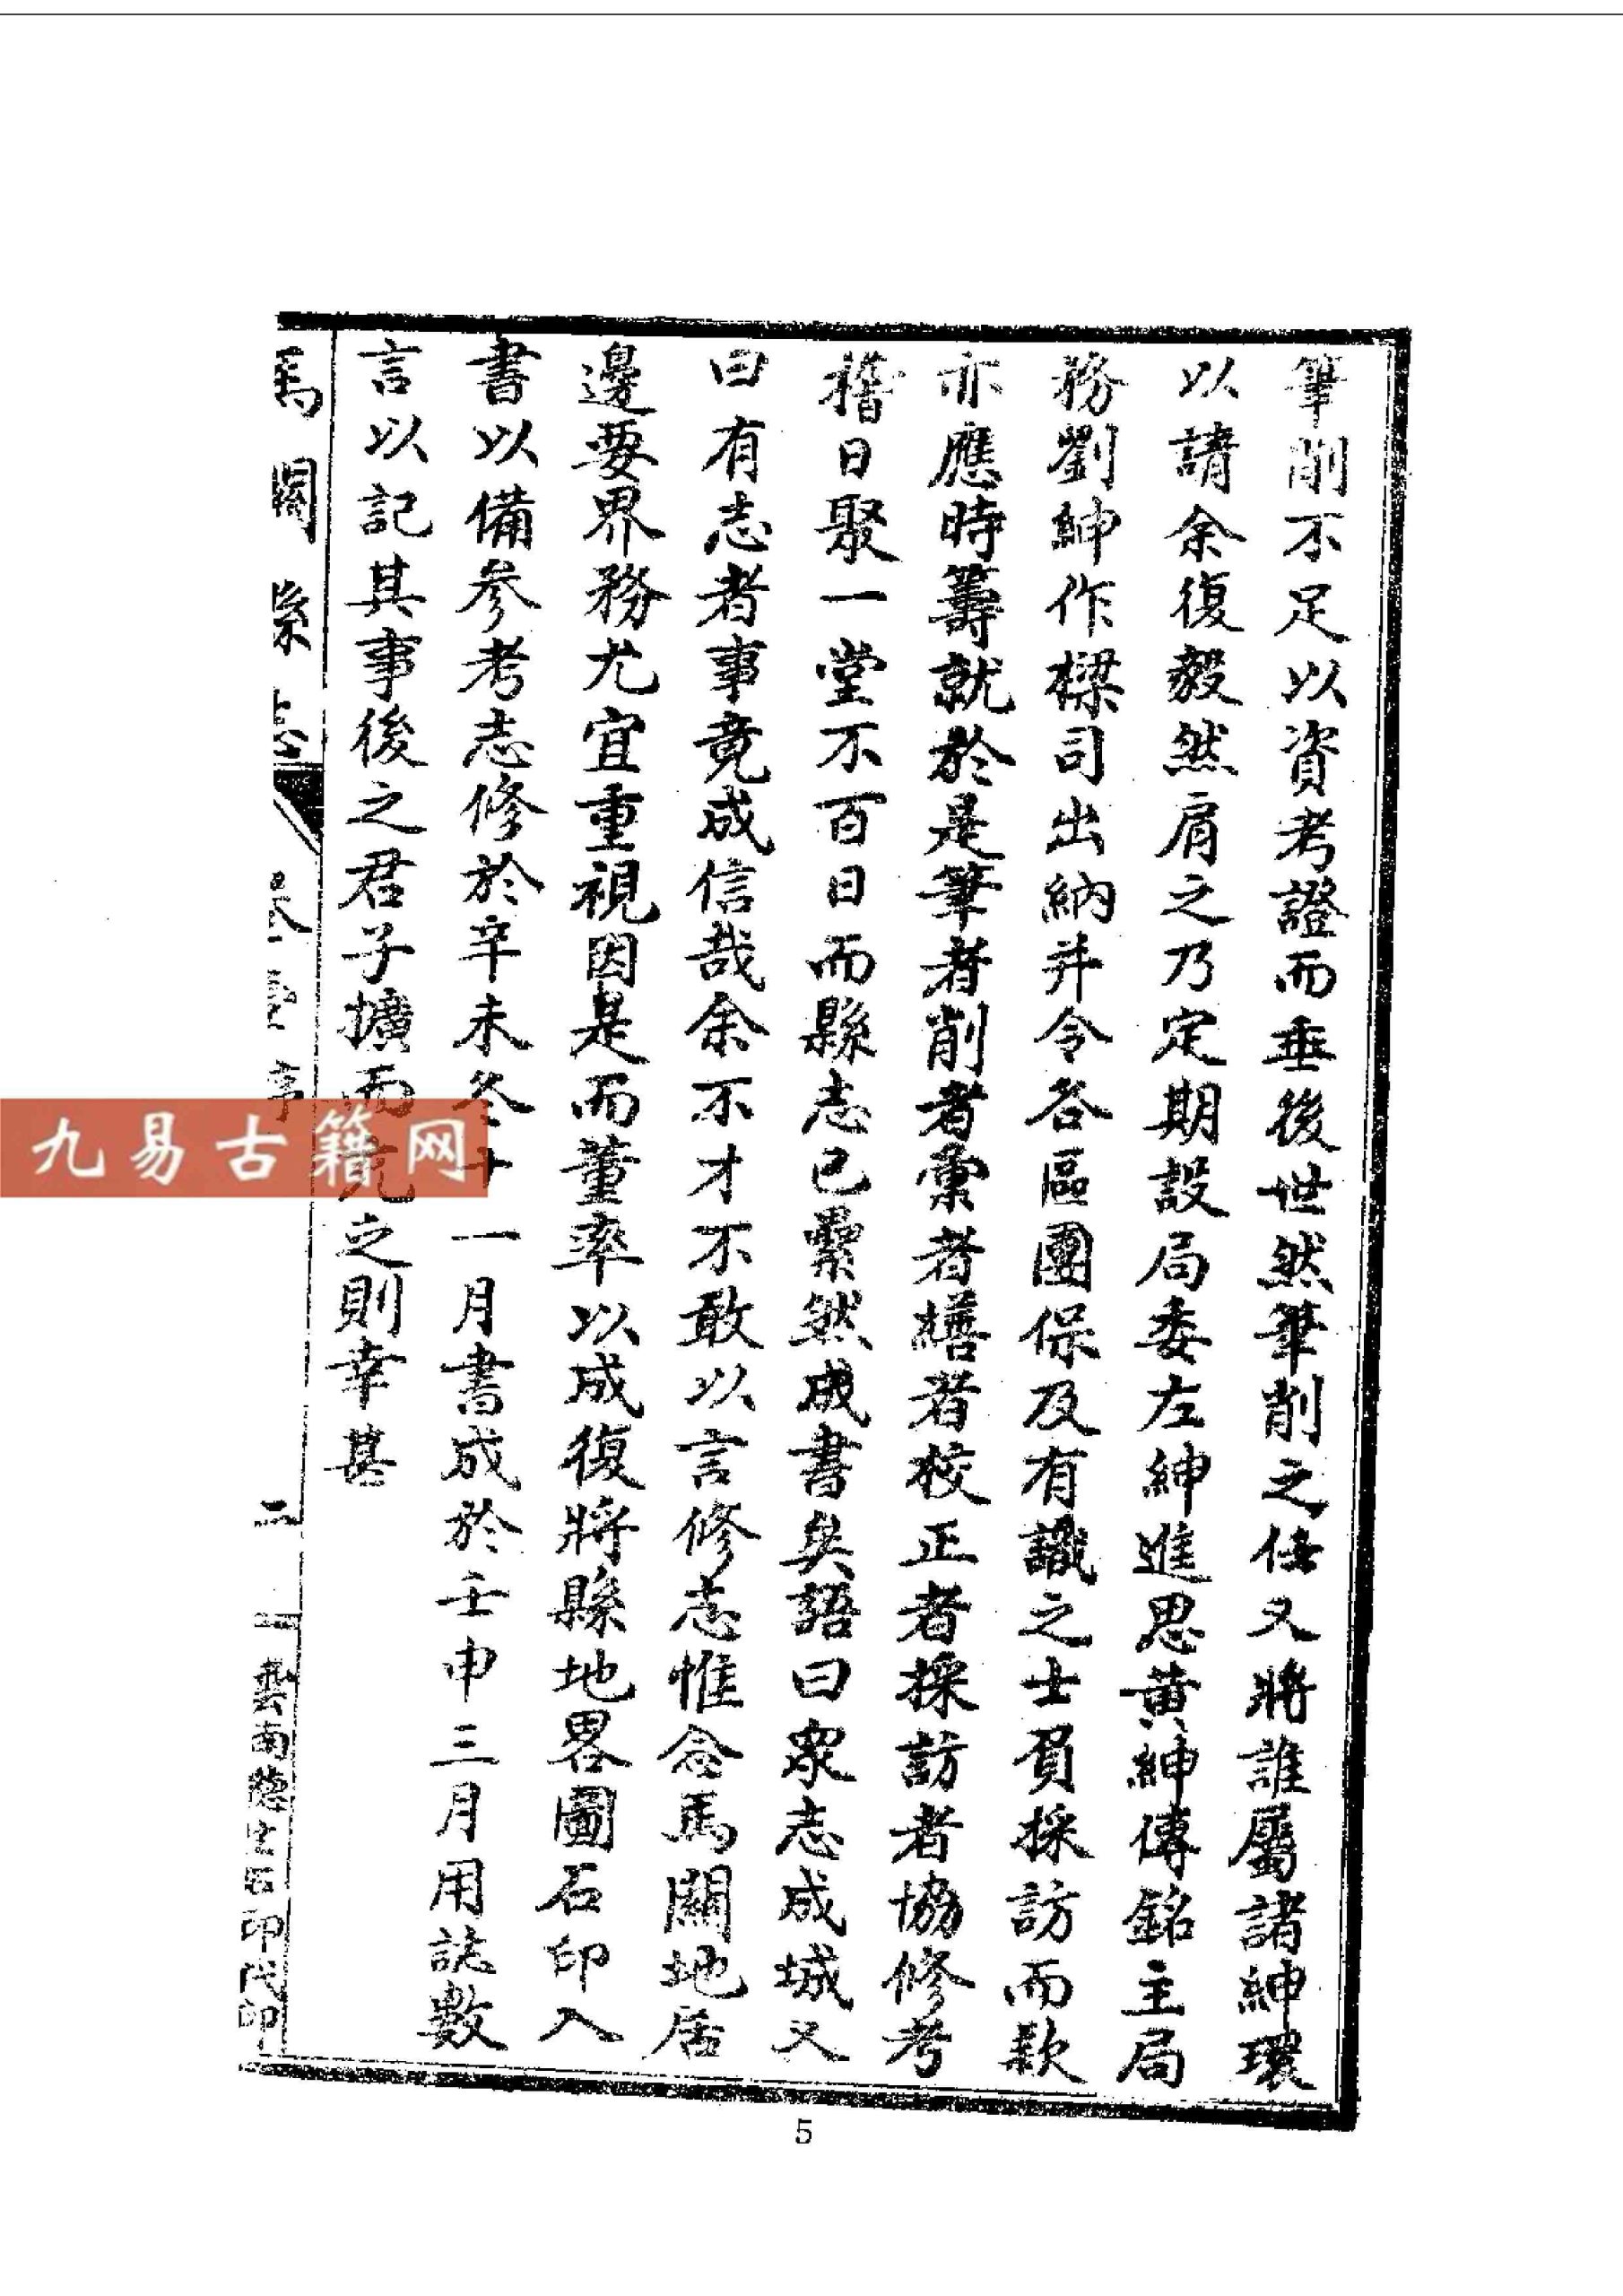 筆削不足以資考證而垂後世然筆削之任又將誰屬諸紳環
以請余復毅然肩之乃定期設局委左紳進思黄紳傳銘主局
務劉紳作樑司出納并令各區團保及有識之士員採訪而款
亦應時籌就於是筆者削者彙者繕者校正者採訪者協修考
稽日聚一堂不百日而縣志已纍然成書矣語曰衆志成城又
曰有志者事竟成信哉余不才不敢以言修志惟念馬關地居
邊要界務尤宜重視因是而董率以成復將縣地畧圖石印入
書以備參考志修於辛未冬十一月書成於壬申三月用誌數
言以記其事後之君子擴而充之則幸甚
馬關縣志 卷壹 序 二 雲南德生石印代印
九易古籍网
5